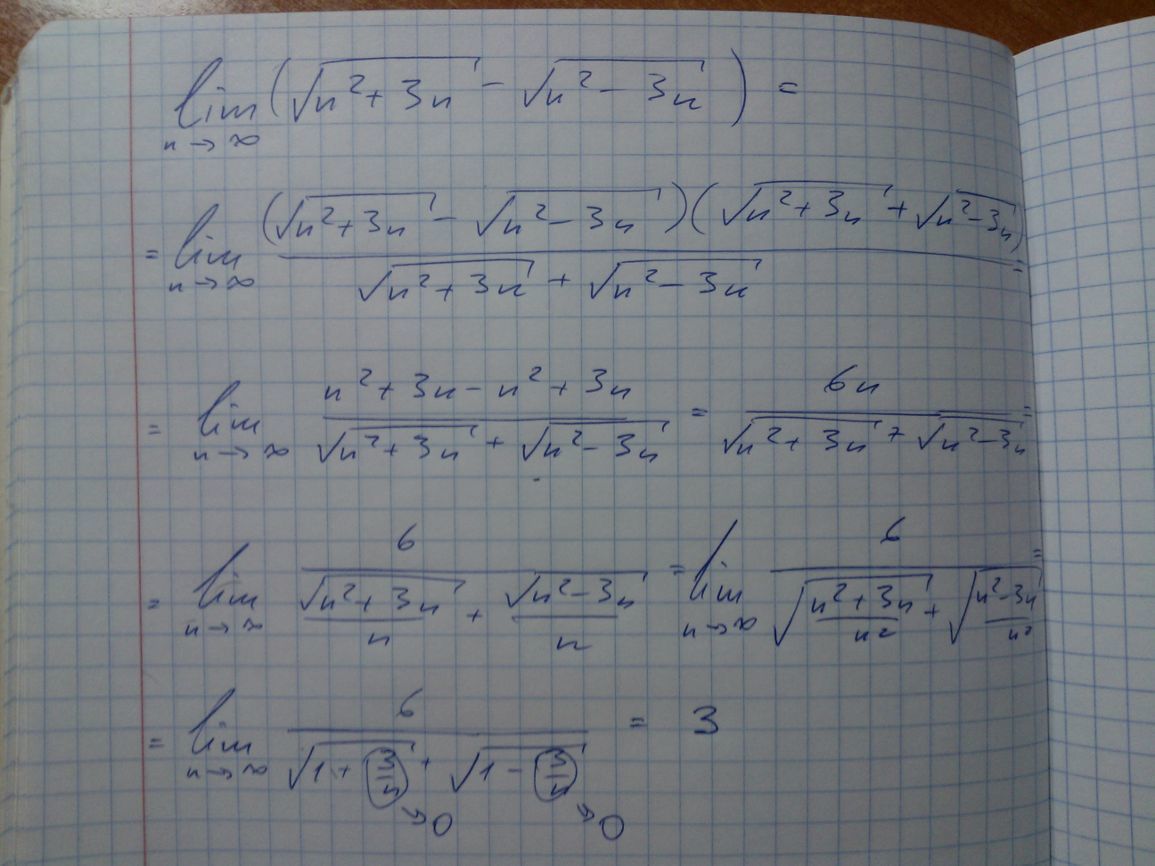 lim n→∞ (√(n²+3n) - √(n²-3n)) =
= lim n→∞ (√(n²+3n) - √(n²-3n))(√(n²+3n) + √(n²-3n)) / (√(n²+3n) + √(n²-3n)) =
= lim n→∞ (n²+3n-n²+3n) / (√(n²+3n) + √(n²-3n)) = 6n / (√(n²+3n) + √(n²-3n)) =
= lim n→∞ 6 / (√(n²+3n)/n + √(n²-3n)/n) = lim n→∞ 6 / (√((n²+3n)/n²) + √((n²-3n)/n²)) =
= lim n→∞ 6 / (√(1+3/n) + √(1-3/n)) = 3
→0 →0